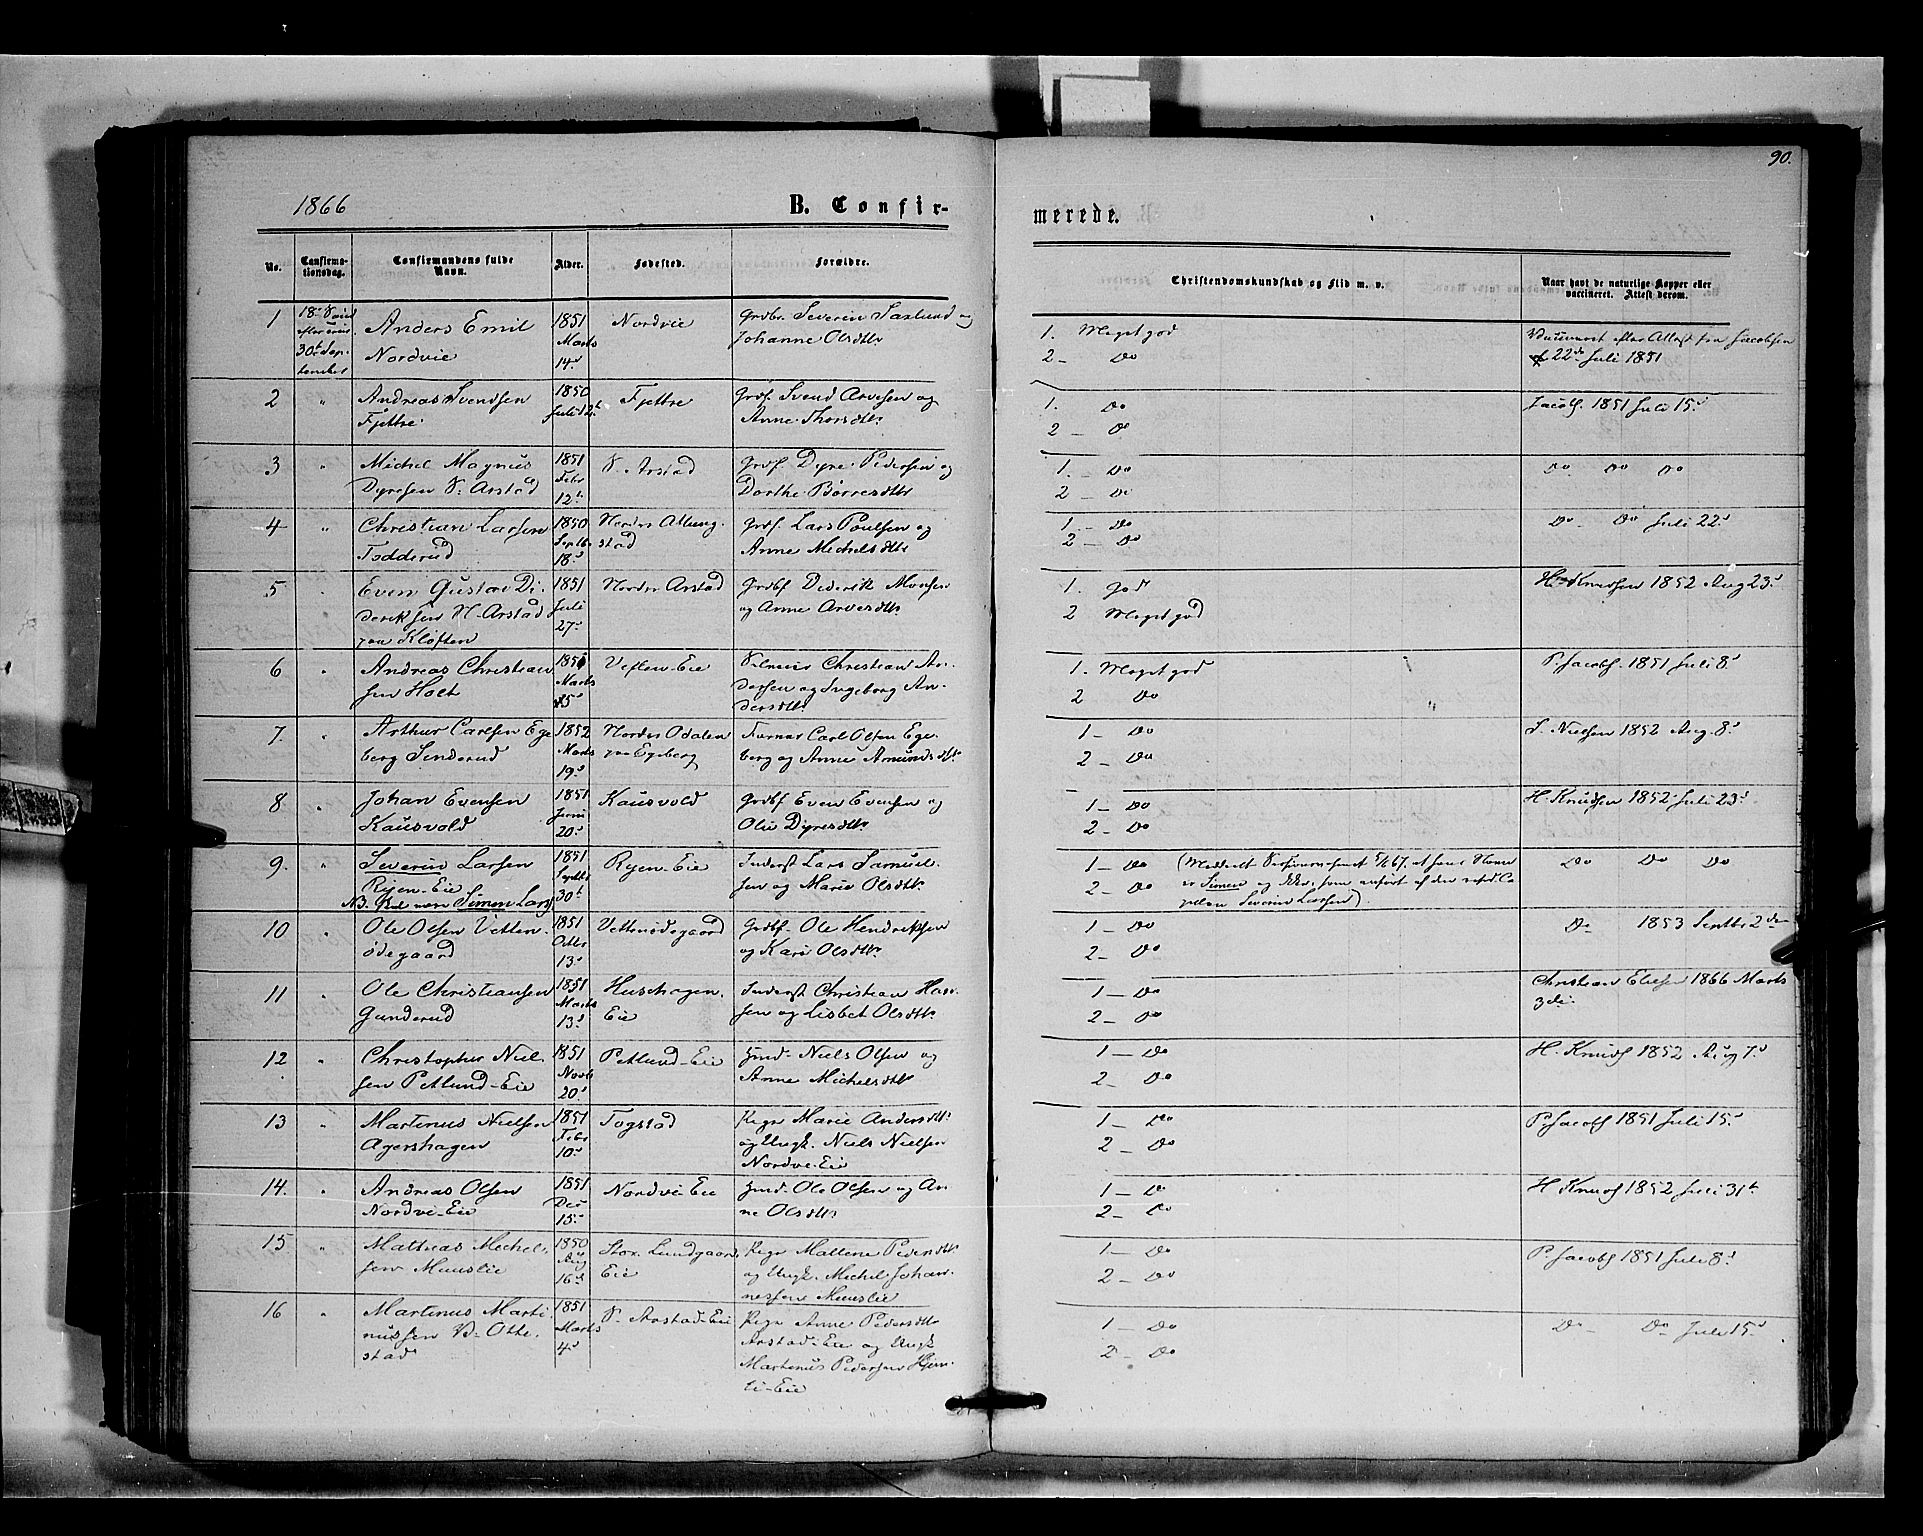 90.
1866
B. Confir-
merede.
No.
Confirma-
tionsdag.
Confirmandens fulde
Navn.
Alder.
Fødested.
Forældre.
Christendomskundskab og Flid m. v.
Naar havt de naturlige Kopper eller
vaccineret. Attest derom.
1
30te Sep-
tember
Anders Emil
Nordvie
1851
Marts
14de
Nordvie
Grdbr. Severin Saxlund og
Johanne Olsdtr
1. Meget god
2 - Do
efter Attest fra Jacobsen
22de Juli 1851
2
"
Andreas Svendsen
Fjettre
1850
Juli 12te
Fjettre
Grdbf. Svend Arvesen og
Anne Thorsdtr
1. Do
2 - Do
Jacobs. 1851 Juli 15de
3
"
Michel Magnus
Dyresen S. Arstad
1851
Febr
12te
S. Arstad
Grdbf. Dyre Pedersen og
Dorthe Børresdtr
1. - Do
2 - Do
Do Do Do
4
"
Christian Larsen
Todderud
1850
Septbr
18de
Nordre Allung-
stad
Grdbf. Lars Poulsen og
Anne Michelsdtr
1 - Do
2 - Do
Do - Do Juli 22de
5
"
Even Gustav Di-
deriksen N. Arstad
paa Kløften
1851
Juli
27de
Nordre Arstad
Grdbf Diderik Monsen
og Anne Arvesdtr
1. God
2 Meget god
H. Knudsen 1852 Aug 23de
6
"
Andreas Christian-
sen Holt
Marts
Veflen-Eie
Christian An-
dersen og Ingeborg An-
dersdtr
1. Meget god
2 Do
P. Jacobs. 1851 Juli 8de
7.
"
Arthur Carlsen Ege-
berg Sinderud
1852
Marts
19de
Nordre Odalen
paa Egeberg
Carl Olsen Ege-
berg og Anne Amundsdtr
1 - Do
2 - Do
Nielsen 1852 Aug. 8de
8
"
Johan Evensen
Kausvold
1851
Juni
20de
Kausvold
Grdbf Even Evensen og
Olia Dyresdtr
1 - Do
2 - Do
H. Knudsen 1852 Juli 23de
9.
"
Severin Larsen
Ryen-Eie
NB. Skal være Simen Lars.
1851
Septbr
30te
Ryen-Eie
Inderst Lars Samuel-
sen og Marie Olsdtr
1 - Do
2 - Do
(Meddeelt 5/6 67, at hans Navn
er Simen og ikke, som anført af den Ca-
pellan Severin Larsen)
Do Do Do
10
"
Ole Olsen Vetten-
ødegaard
1851
Octbr
13de
Vettenødegaard
Grdbf. Ole Hendriksen
og Kari Olsdtr
1 - Do
2 - Do
Do 1853 Septbr 2den
11
"
Ole Christiansen
Gunderud
1851
Marts
13de
Hushagen-
Eie
Inderst Christian Han-
sen og Lisbet Olsdtr
1 - Do
2 - Do
Christian Eliesen 1866 Marts
3die
12
"
Christopher Niel-
sen Petlund-Eie
1851
Novb
20de
Petlund-Eie
Hmd. Niels Olsen og
Anne Michelsdtr
1 - Do
2 - Do
H. Knuds 1852 Aug 7de
13
"
Martinus Nielsen
Agershagen
1851
Febr
10de
Togstad
Pige Marie Andersdtr
og Ungk. Niels Nielsen
Nordvi-Eie
1 - Do
2 - Do
P. Jacobs 1851 Juli 15de
14.
"
Andreas Olsen
Nordvi-Eie
1851
Dec
15de
Nordvi-Eie
Hmd. Ole Olsen og An-
ne Olsdtr
1 - Do
2 - Do
H Knuds 1852 Juli 31te
15
"
Mathias Michel-
sen Muuslie
1850
Aug
16de
Store Lundgaard
Eie
Pige Mallene Pedersdtr
og Ungk. Michel Johan-
nessen Muuslie
1 - Do
2 - Do
P. Jacobs 1851 Juli 8de
16
"
Martinus Marti-
nussen V. Otte-
stad
1851
Marts
4de
S. Arstad-Eie
Pige Anne Pedersdtr
Arstad-Eie og Ungk
Martinus Pedersen Hjem-
li-Eie
1 - Do
2 - Do
Do - Do Juli 15de